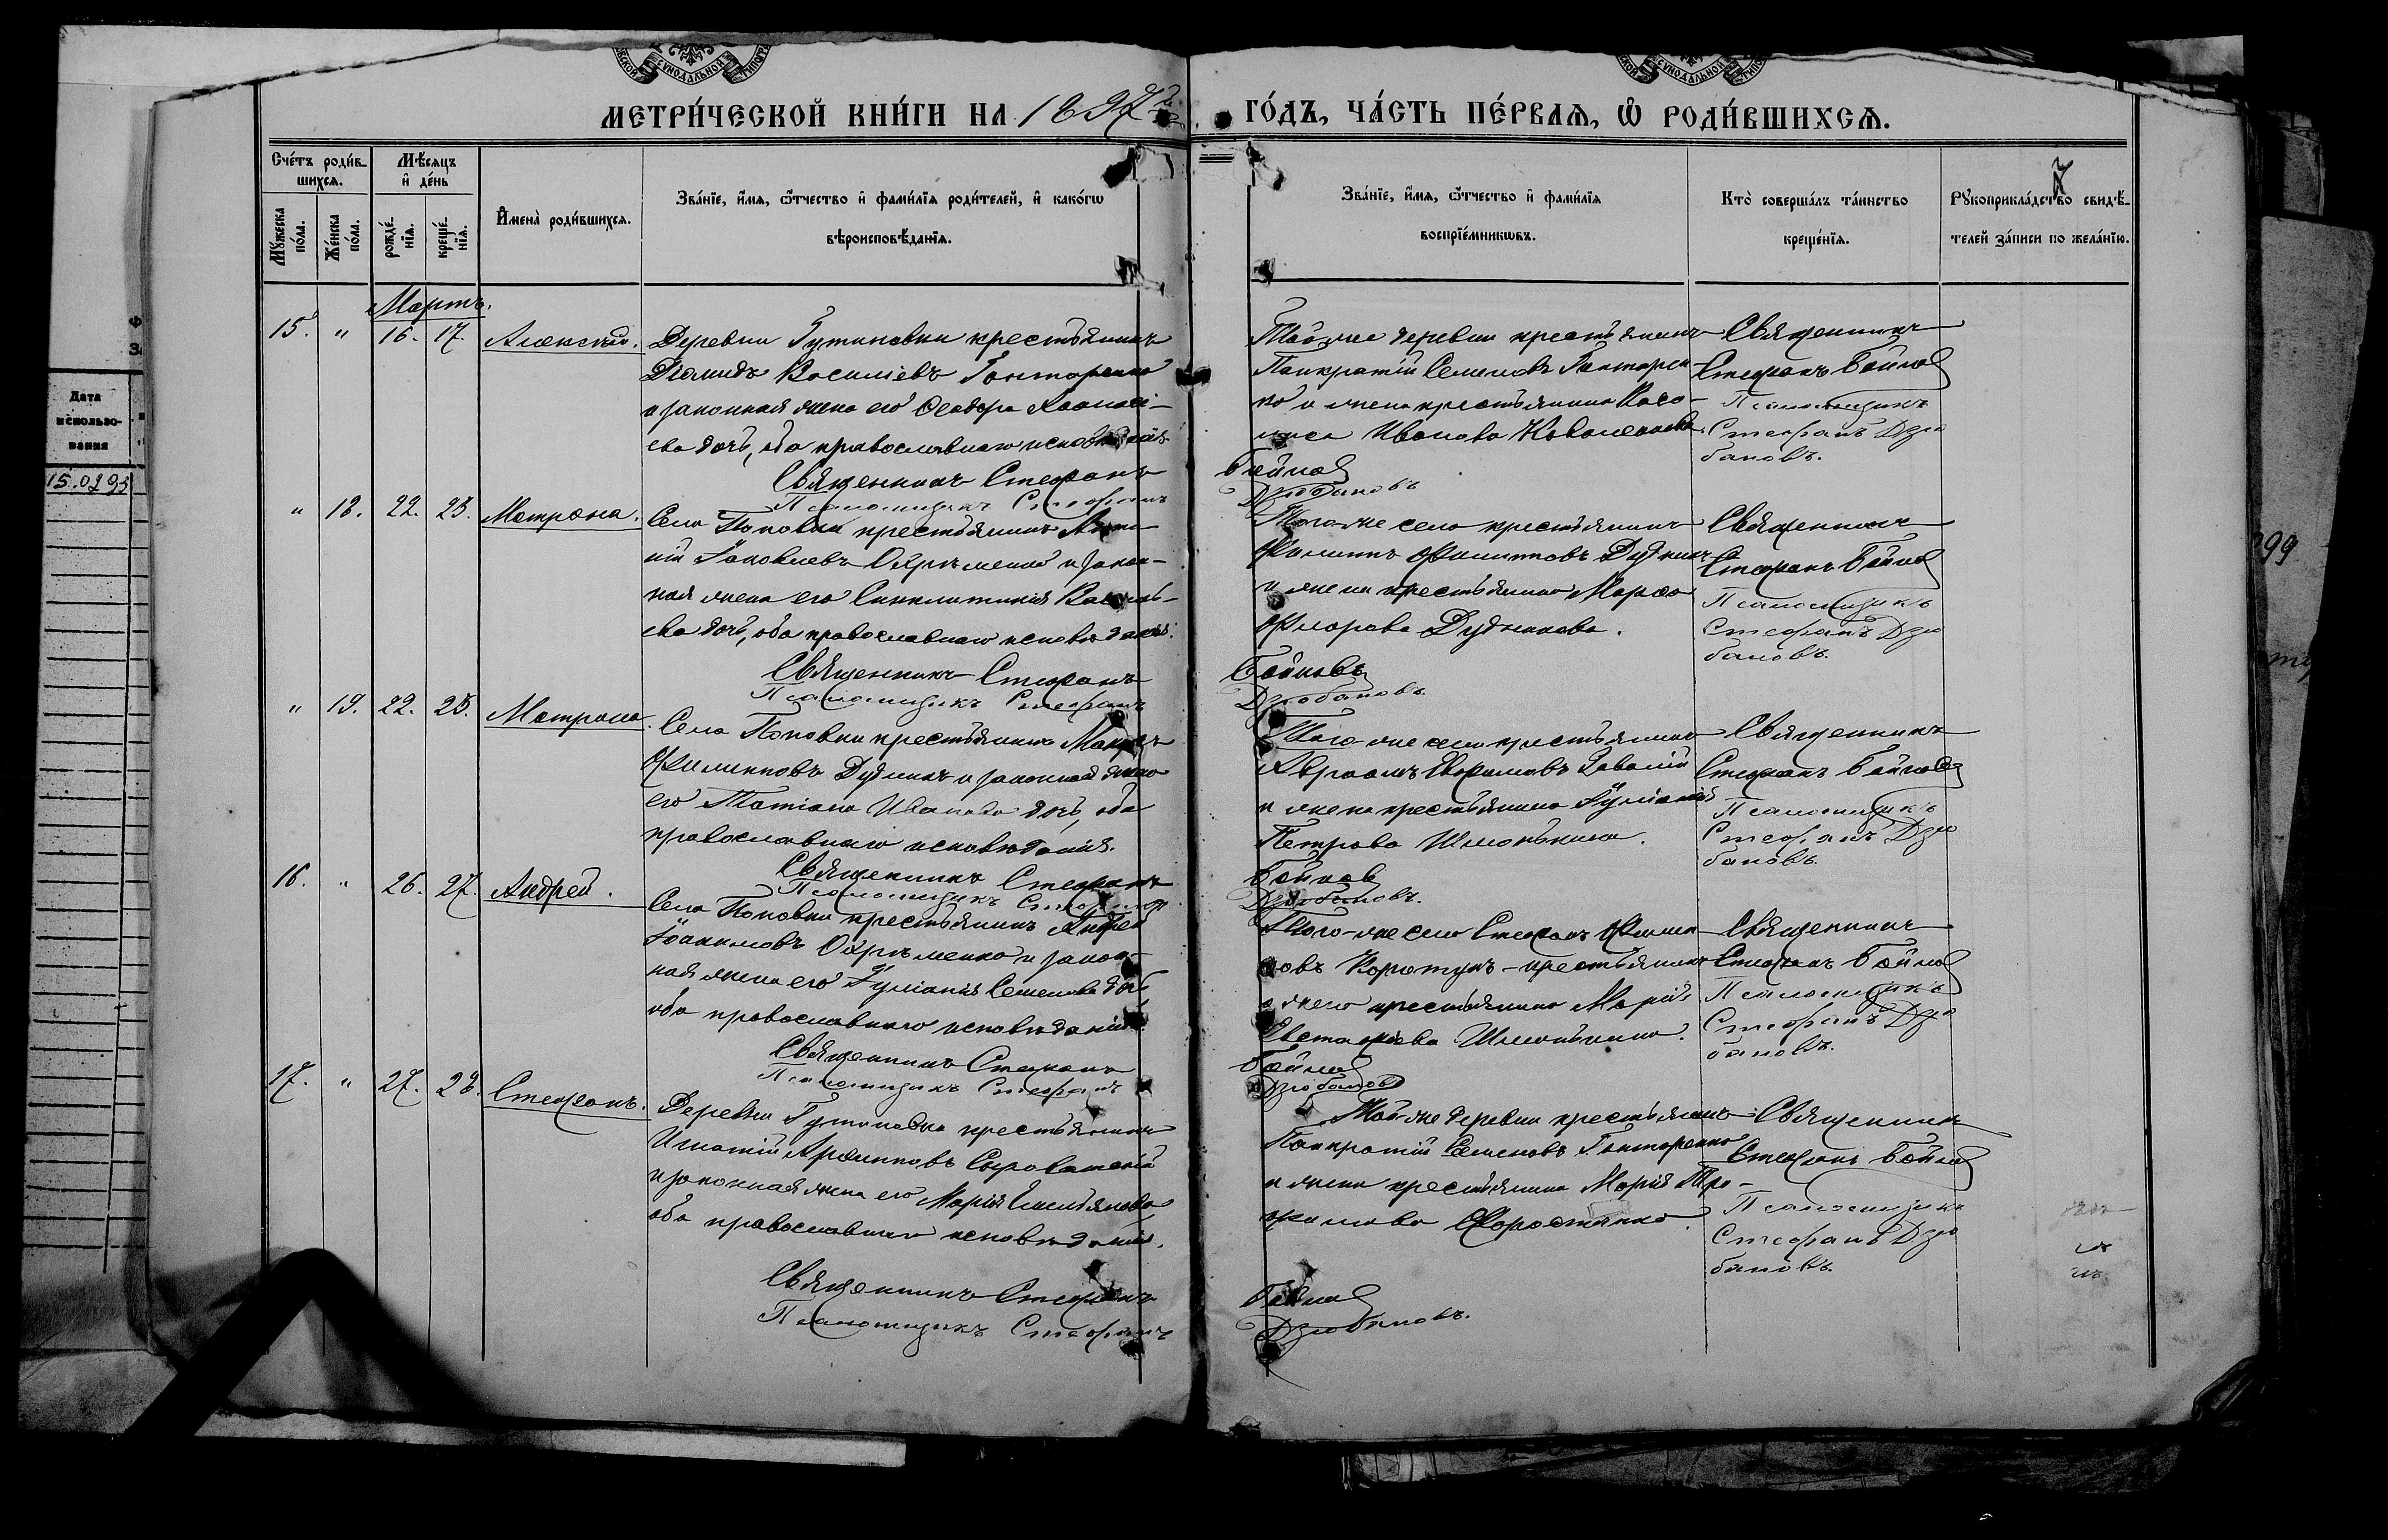 МЕТРИ́ЧЕСКОЙ КНИ́ГИ НА 1897й
ГО́ДЪ, ЧА́СТЬ ПЕ́РВАѦ, Ѡ҆ РОДИ́ВШИХСѦ.
Сче́тъ роди́в-
шихсѧ.
Мѣ́сяцъ
и҆ де́нь
Мꙋ́жеска
по́ла.
Же́нска
по́ла.
рожде́-
нїѧ.
креще́-
нїѧ.
И҆мена̀ роди́вшихсѧ.
Зва́нїе, и҆́мѧ, ѻ҆́тчество и҆ фами́лїѧ роди́телей, и҆ како́гѡ
вѣроисповѣ́данїѧ.
Зва́нїе, и҆́мѧ, ѻ҆́тчество и҆ фами́лїѧ
воспрїе́мникѡвъ.
Кто̀ соверша́лъ та́инство
креще́нїѧ.
Рꙋкоприкла́дство свидѣ́-
телей за́писи по жела́нїю.
Мартъ.
15. " 16. 17. Алексій.
Деревни Гутниковки крестьянинъ
Діомидъ Василіевъ Гонтаренко
и законная жена его Ѳеодора Аѳанасі-
ева дочь, оба православнаго исповѣданія
Священникъ Стефанъ
Псаломщикъ Стефанъ
Той-же деревни крестьянинъ
Панкратій Семеновъ Гонтарен-
ко и жена крестьянина
Иванова
Бойков
Дзюбановъ
Священникъ
Стефанъ Бойков
Псаломщикъ
Стефанъ Дзю
бановъ.
" 18. 22. 23. Матрона.
Села Поповки крестьянинъ
ній Іаковлевъ Охрѣменко и закон-
ная жена его Синклитикія Василь-
ева дочь, оба православнаго исповѣданія.
Священникъ Стефанъ
Псаломщикъ Стефанъ
Того-же села крестьянинъ
Филиппъ Филипповъ Дудникъ
и жена крестьянина Марѳа
Флорова Дудникова.
Бойковъ
Дзюбановъ.
Священникъ
Стефанъ Бойков
Псаломщикъ
Стефанъ Дзю
бановъ.
" 19. 22. 23. Матрона.
Села Поповки крестьянинъ
Филипповъ Дудникъ и законная жена
его Татіана Иванова дочь, оба
православнаго исповѣданія.
Священникъ Стефанъ
Псаломщикъ Стефанъ
Того же села крестьянинъ
Авраамъ Ефимовъ
и жена крестьянина Іуліанія
Петрова Шмонькина.
Бойков
Дзюбановъ.
Священникъ
Стефанъ Бойков
Псаломщикъ
Стефанъ Дзю
бановъ.
16. " 26. 27. Андрей.
Села Поповки крестьянинъ Андрей
Іоакимовъ Охрѣменко и закон-
ная жена его Іуліанія Семенова дочь
оба православнаго исповѣданія.
Священникъ Стефанъ
Псаломщикъ Стефанъ
Того-же села Стефанъ Филип
повъ Коротунъ-крестьянинъ
и жена крестьянина Марія
Евстафіева Шмонькина.
Бойков
Дзюбановъ
Священникъ
Стефанъ Бойков
Псаломщикъ
Стефанъ Дзю
бановъ.
17. " 27. 28. Стефанъ.
Деревни Гутниковки крестьянинъ
Игнатій Архипповъ Сыроватскій
и законная жена его Марія Емельянова
оба православнаго исповѣданія.
Священникъ Стефанъ
Псаломщикъ Стефанъ
Той-же деревни крестьянинъ
Панкратій Семеновъ Гонтаренко
и жена крестьянина Марія Тро-
фимова
Бойков
Дзюбановъ.
Священникъ
Стефанъ Бойков
Псаломщикъ
Стефанъ Дзю
бановъ.
Дата
использо-
вания
299